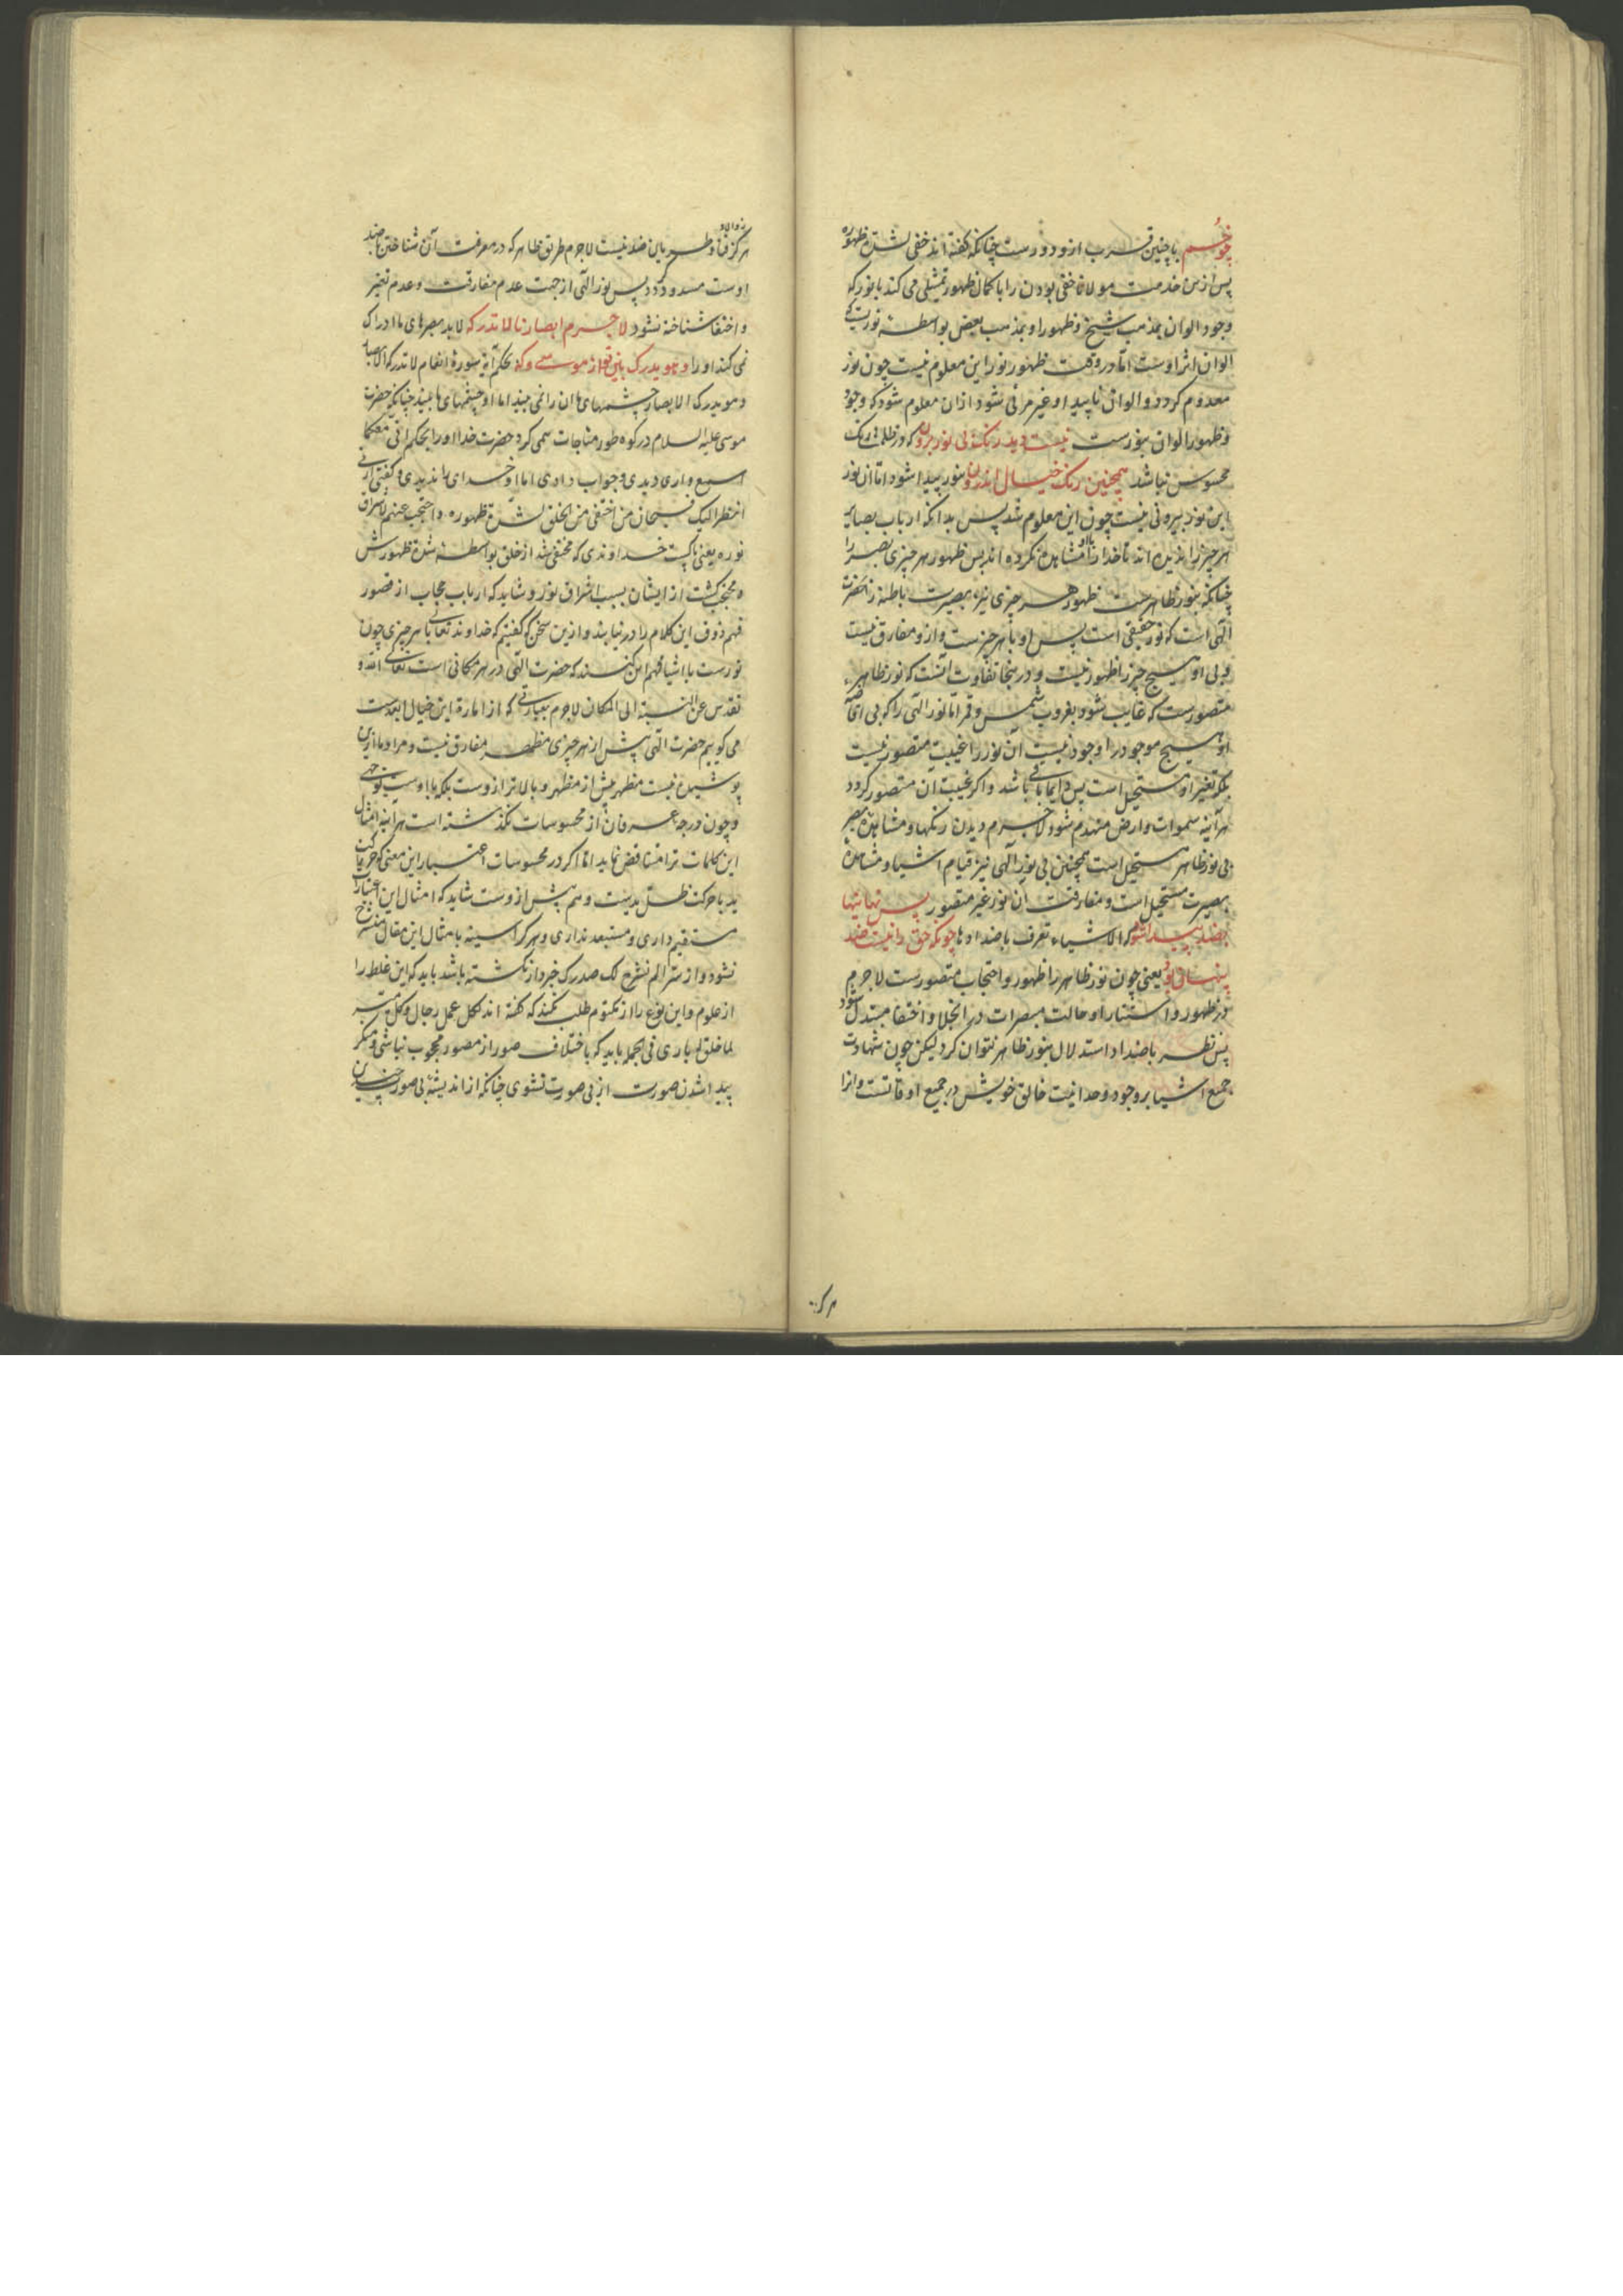 چو خُم با چنین قرب ازو دورست چنانکه گفته اند خفی لشدة ظهوره
پس ازین خدمت مولانا خفی بودن را با کمال ظهور تمثیلی می کند با نور که
وجود الوان بمذهب شیخ و ظهور او بمذهب بعضی بواسطهٔ نورست که
الوان اثر اوست اما در وقت ظهور نور این معلوم نیست چون نور
معدوم گردد و الوان ناپیدا و غیر مرئی شود ازان معلوم شود که وجود
و ظهور الوان بنورست نیست دید رنک بی نور برون که در ظلمات رنک
محسوس نباشد همچنین رنک خیال اندرون بنور پیدا شود اما آن نور
این نور بیرونی نیست چون این معلوم شد پس بدانکه ارباب بصایر
هر چیز را ندیده اند تا خدا را با او مشاهده نکرده اند پس ظهور هر چیزی بصر را
چنانکه بنور ظاهرست ظهور هر چیزی نیز بصیرت باطنه را حضرت
الهی است که نور حقیقی است پس او با هر چیزست و ازو مفارق نیست
و بی او هیچ چیز را ظهور نیست و درینجا تفاوت آنست که نور ظاهر
متصورست که غایب شود بغروب شمس و قمر اما نور الهی را که بی
او هیچ موجود را وجود نیست آن نور را غیبت متصور نیست
بلکه تغیر او مستحیل است پس دایما باقی باشد و اگر غیبت آن متصور گردد
هر آینه سموات و ارض منهدم شود لاجرم دیدن رنگها و مشاهده بصر
بی نور ظاهر مستحیل است همچنین بی نور الهی نیز قیام اشیا و مشاهدهٔ
بصیرت مستحیل است و مفارقت آن نور غیر متصور پس نهانیها
بضد پیدا شود که الاشیاء تعرف باضدادها چونکه حق را نیست ضد
پنهان بود یعنی چون نور ظاهر را ظهور و احتجاب متصورست لاجرم
در ظهور و استتار او حالت مبصرات در انجلا و اختفا مبتدل شود
پس نظر باضداد استدلال بنور ظاهر توان کرد لیکن چون شهادت
جمیع اشیا بر وجود و وحدانیت خالق خویش در جمیع اوقاتست و او را
هرگز فنا و باین ضد نیست لاجرم طریق ظاهر که در معرفت آن شناختن باضد
اوست مسدود گردد پس نور الهی از جهت عدم مفارقت و عدم تغیر
و اختفا شناخته نشود لاجرم ابصارنا لا تدرکه لابد بصرهای ما ادراک
نمی کند او را و هو یدرک بین تو از موسی و که بحکم آیه سورهٔ انعام لا تدرکه الابصار
و هو یدرک الابصار چشمهای ما آن را نمی بیند اما او چشمهای ما بیند چنانکه حضرت
موسی علیه السلام در کوه طور مناجات می کرد حضرت خدا او را بحکم اننی معکما
اسمع و اری دیدی و جواب دادی اما او خدای را ندیدی و گفتی ارنی
انظر الیک فسبحان من اختفی من الخلق لشدة ظهوره و احتجب عنهم لاشراق
نوره یعنی پاکست خداوندی که مختفی شد از خلق بواسطهٔ شدت ظهورش
و محتجب گشت از ایشان بسبب اشراق نور و شاید که ارباب حجاب از قصور
فهم ذوق این کلام را درنیابند و ازین سخن که گفتیم که خداوند تعالی با هر چیزی چون
نورست با اشیا فهم این کنند که حضرت الهی در هر مکانی است تعالی الله و
تقدس عن النسبة الی المکان لاجرم بعبارتی که از امارة این خیال ابعدست
می گوییم حضرت الهی پیش از هر چیزی مظهر مفارق نیست و مراد ما ازین
پوشیده نیست مظهر پیش از مظهر و بالاتر ازوست بلکه با اوست بوجهی
و چون درجه عرفان از محسوسات نگذشته است هر آینه امثال
این کلمات ترا متناقض نماید اما اگر در محسوسات اعتبار این معنی که حرکت
ید با حرکت ظل یدست و هم پیش ازوست شاید که امثال این اعتبار
مستقیم داری و مستبعد نداری و هر کرا سینه بامثال این مقال منشرح
نشود و از سر الم نشرح لک صدرک خبردار نگشته باشد باید که این غلط را
از علوم و این نوع را از نکتوم طلب نکند که گفته اند لکل عمل رجال و کل میسر
لما خلق له باری فی الجمله باید که باختلاف صور از مصور محجوب نباشی و منکر
پیدا شدن صورت از بی صورت نشوی چنانکه از اندیشهٔ بی صورت چندین